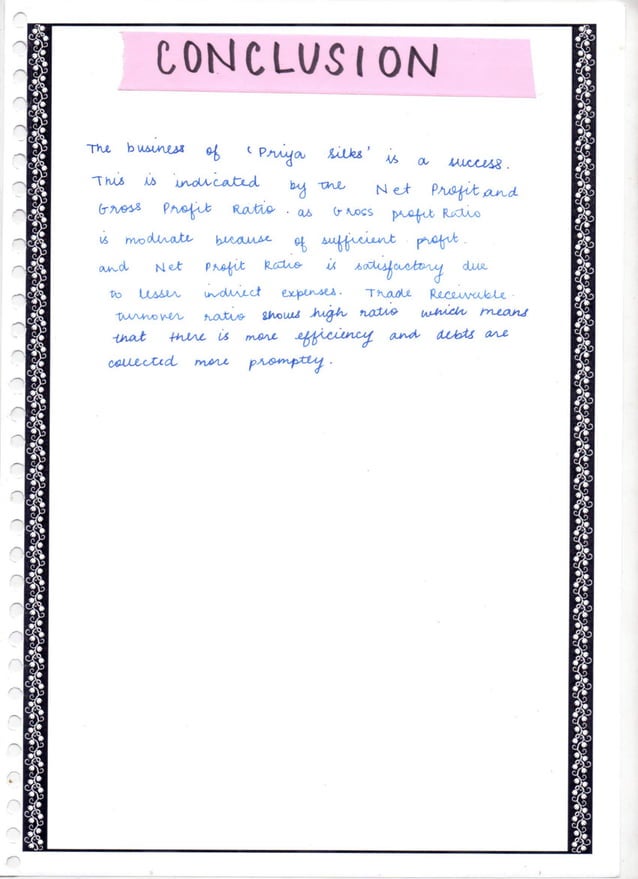 CONCLUSION
The business of 'Priya Silks' is a success.
This is indicated by the Net Profit and
Gross Profit Ratio. as Gross profit Ratio
is moderate because of sufficient profit.
and Net Profit Ratio is satisfactory due
to lesser indirect expenses. Trade Receivable
turnover ratio shows high ratio which means
that there is more efficiency and debts are
collected more promptly.